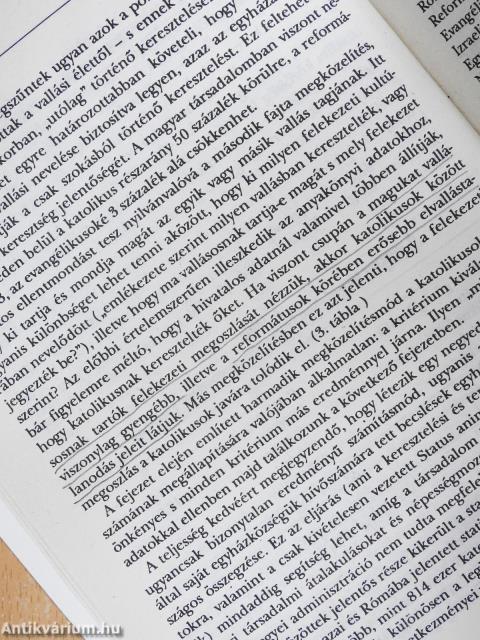 gszűntek ugyan azok a po
tak a vallási élettől – s ennek
korban, „utólag" történő keresztelése
egyre határozottabban követeli, hogy
vallási nevelése biztosítva legyen, azaz az egyháza
ják a csak szokásból történő keresztelést. Ez feltehet
keresztség jelentőségét. A magyar társadalomban viszont ne
den belül a katolikus részarány 50 százalék körülre, a reformá-
az evangélikusoké 3 százalék alá csökkenhet.
os ellentmondást tesz nyilvánvalóvá a második fajta megközelítés,
ki tartja és mondja magát az egyik vagy másik vallás tagjának. Itt
yanis különbséget lehet tenni aközött, hogy ki milyen felekezeti kultú
ában nevelődött („emlékezete szerint milyen vallásban keresztelték, vagy
jegyezték be?"), illetve hogy ma vallásosnak tartja-e magát s mely felekezet
szerint? Az előbbi értelemszerűen illeszkedik az anyakönyvi adatokhoz,
bár figyelemre méltó, hogy a hivatalos adatnál valamivel többen állítják,
hogy katolikusnak keresztelték őket. Ha viszont csupán a magukat vallá
sosnak tartók felekezeti megoszlását nézzük, akkor katolikusok között
viszonylag gyengébb, illetve a reformátusok körében erősebb elvallásta-
lanodás jeleit látjuk. Más megközelítésben ez azt jelenti, hogy a felekezeti
megoszlás a katolikusok javára tolódik el. (3. tábla )
A fejezet elején említett harmadik megközelítésmód a katolikusok
számának megállapítására valójában alkalmatlan: a kritérium kivál
önkényes s minden kritérium más eredménnyel járna. Ilyen
adatokkal ellenben majd találkozunk a következő fejezetben.
A teljesség kedvéért megjegyzendő, hogy létezik egy negye
ugyancsak bizonytalan eredményű számításmód, ugyanis
által saját egyházközségük hívőszámára tett becslések egyh
szágos összegzése. Ez az eljárás (ami a keresztelési és te
tokra, valamint a csak kivételesen vezetett Status anim
mindaddig segítség lehet, amíg a társadalom
társadalmi átalakulásokat és népességmoz
egyei adminisztráció nem tudta megfele
zöttek jelentős része kikerült a stat
ai és Rómába jelentett stat
bb, mint 814 ezer kat
különösen a leg
kezményei
Refor
Evangél
Izrael
Eg
Antikvárium.hu